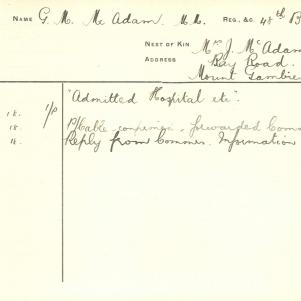 NAME G. M. Mc Adam. REG., &C. 48th B
NEXT OF KIN Mrs J. McAdam
ADDRESS Bay Road.
Mount Gambie
"Admitted Hospital etc".
18. 1/P
18. P/Cable forwarded Comm
18. Reply from Commrs. Information